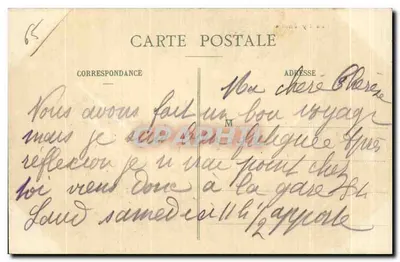 65
CARTE POSTALE
CORRESPONDANCE
ADRESSE
Ma chère Thérèse
Nous avons fait un bon voyage
M
mais je suis bien fatiguée Après
reflexion je n'irai point chez
toi viens donc à la gare St
Laud samedi 11h 1/2 apporte